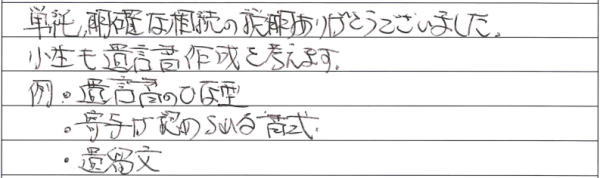 単純,明確な相続の説明ありがとうございました。
小生も遺言書作成を考えます。
例・遺言書のひな型
・寄与が認められる書式
・遺留文